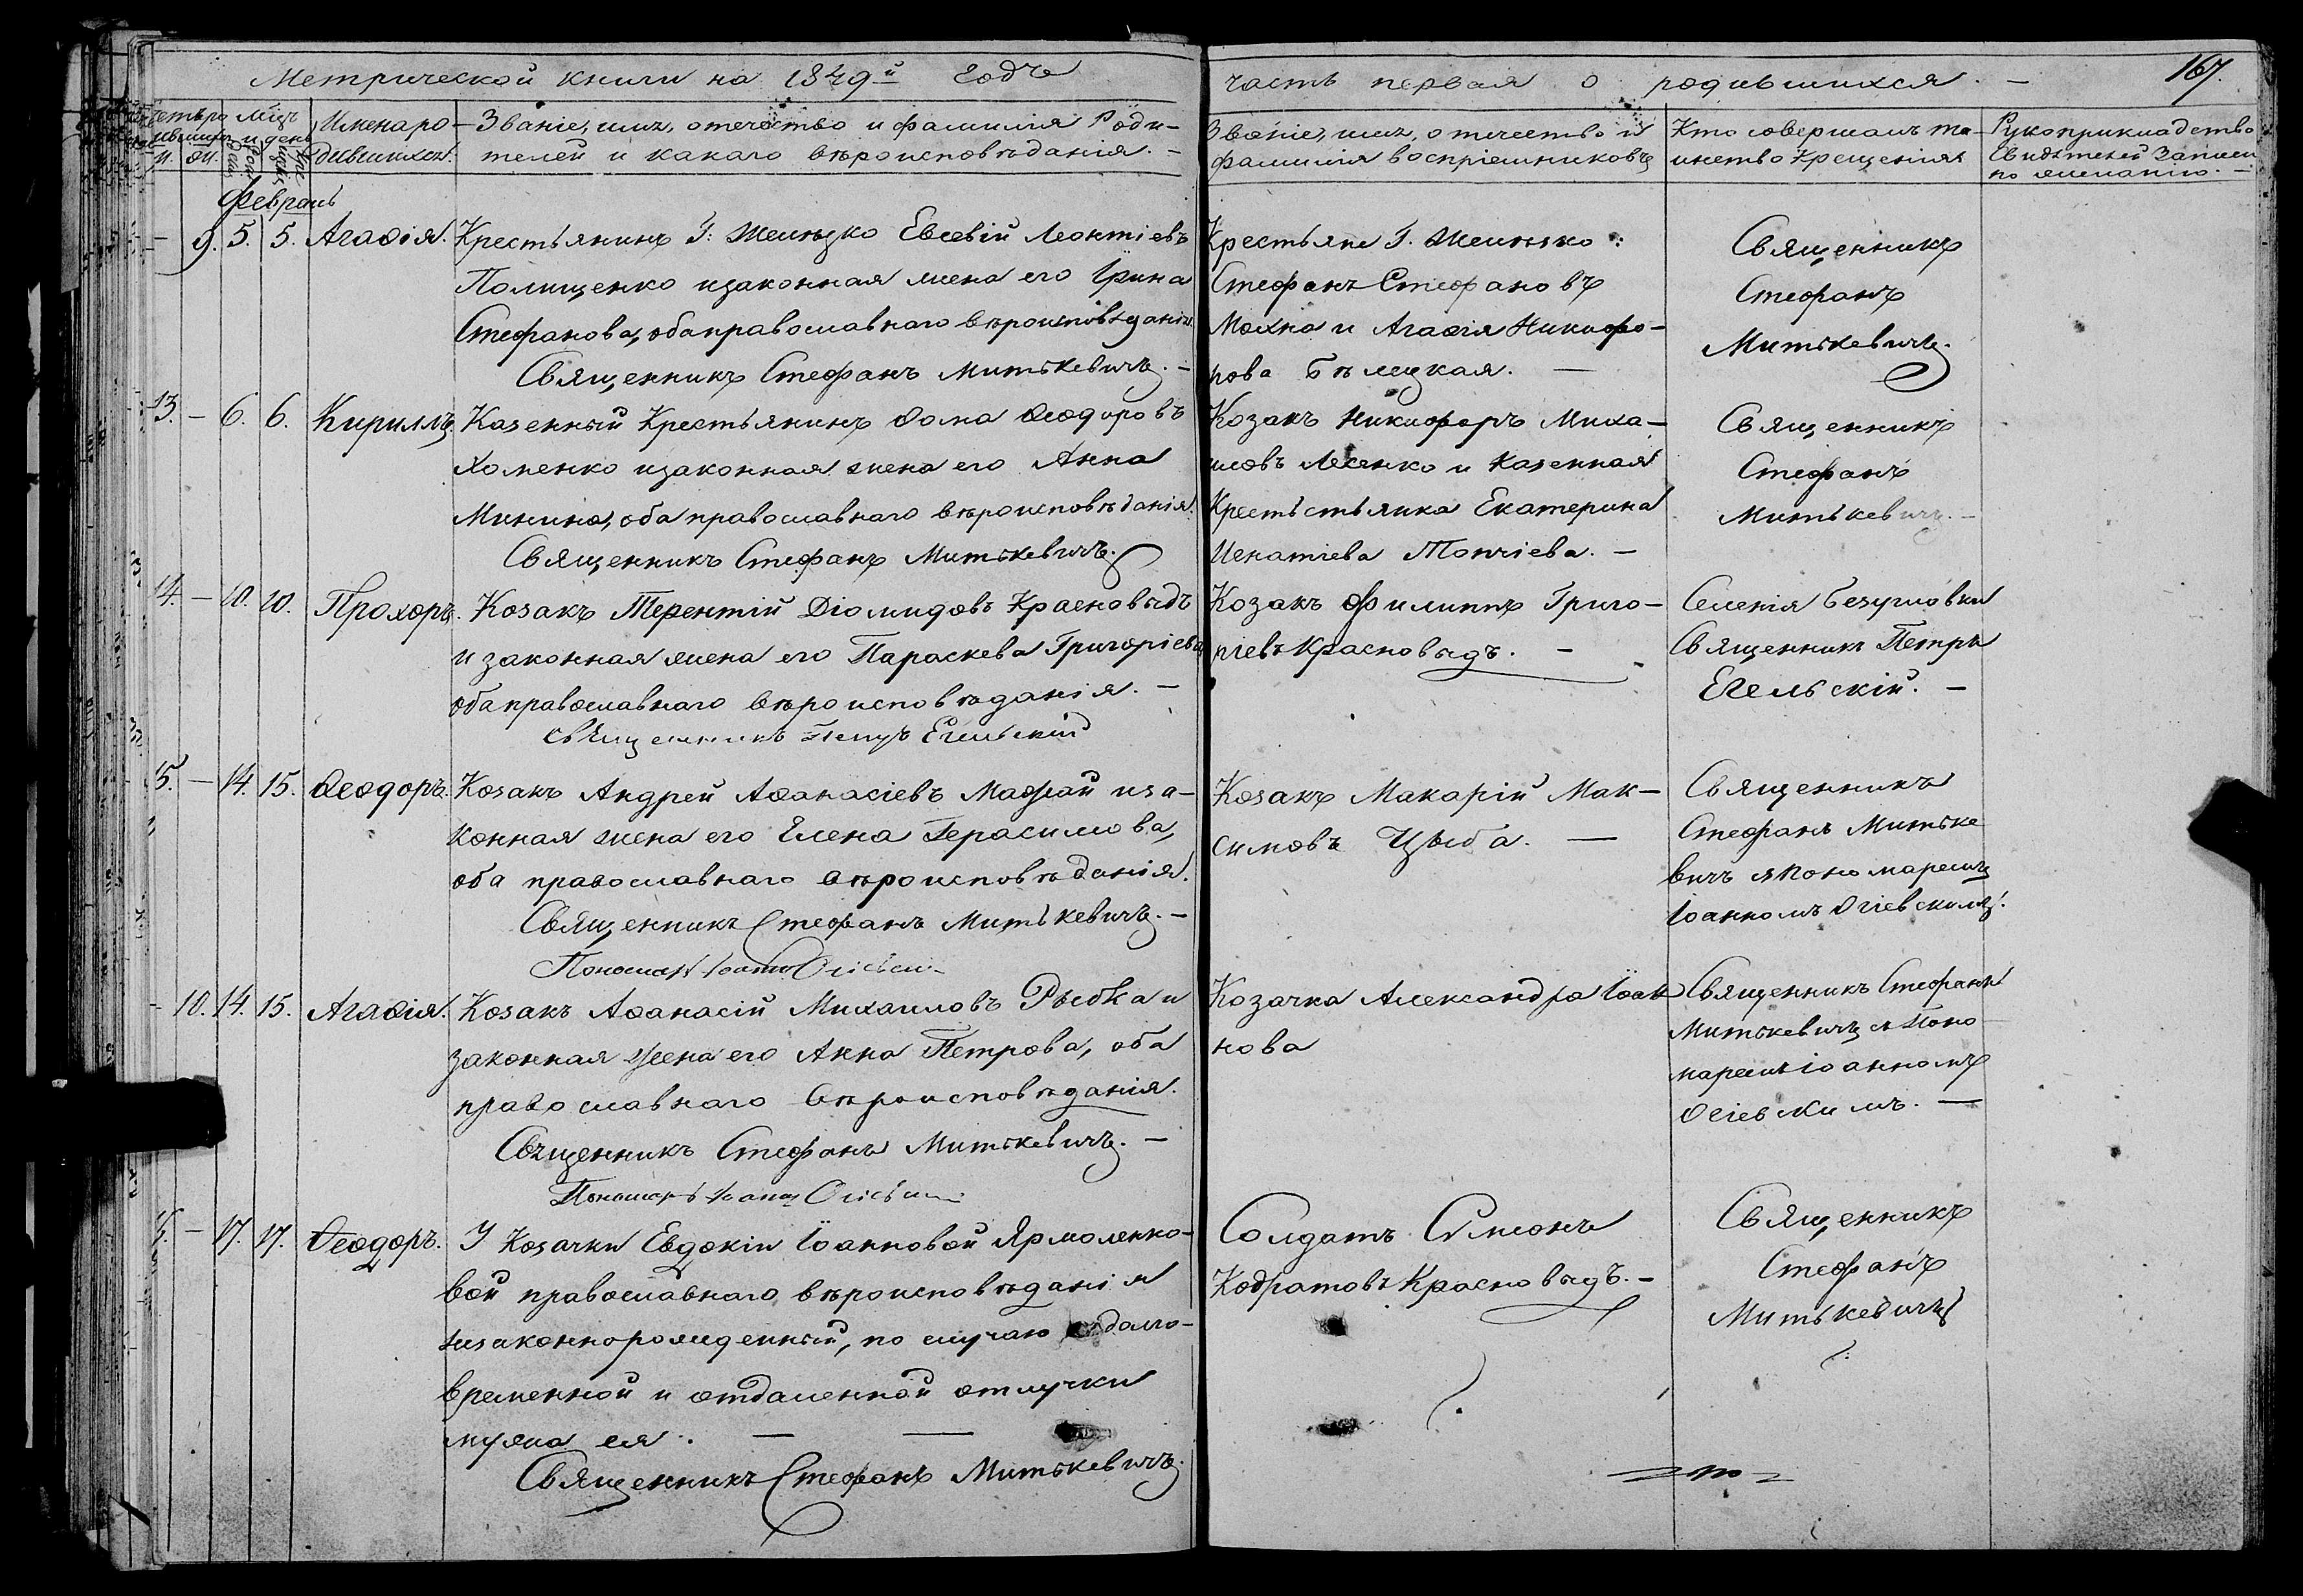 Метрической книги на 1849й годъ
часть первая о родившихся. —
167.
Имена ро-
дившихся.
Званіе, имя, отечество и фамилія Роди-
телей и какаго вѣроисповѣданія. —
Званіе, имя, отечество и
фамилія воспріемниковъ
Кто совершалъ та-
инство Крещенія
Рукоприкладство
Свидѣтелей записи
по желанію. —
Февраль
9. 5. 5. Агаѳія.
Крестьянинъ Г: Евсевій Леонтіевъ
Полищенко изаконная жена его Ірина
Стефанова, оба православнаго вѣроисповѣданія.
Священникъ Стефанъ Митькевичъ. —
Крестьяне Г. :
Стефанъ Стефановъ
Махна и Агаѳія Никифо-
рова Бѣлецкая. —
Священникъ
Стефанъ
Митькевичъ.
13. — 6. 6. Кириллъ.
Казенный Крестьянинъ Ѳома Ѳеодоровъ
Хоменко изаконная жена его Анна
Минина, оба православнаго вѣроисповѣданія.
Священникъ Стефанъ Митькевичъ.
Козакъ Никифоръ Миха-
иловъ и Казенная
Крестьстьянка Екатерина
Игнатіева. —
Священникъ
Стефанъ
Митькевичъ. —
14. — 10. 10. Прохоръ.
Козакъ Терентій Діомидовъ Красновыдъ
и законная жена его Параскева Григоріева
оба православнаго вѣроисповѣданія. —
Священникъ Петръ Егельскій
Козакъ Филиппъ Григо-
ріевъ Красновыдъ. —
Селенія Безугловки
Священникъ Петръ
Егельскій. —
15. — 14. 15. Ѳеодоръ.
Козакъ Андрей Аѳанасіевъ Мафтай иза-
конная жена его Елена Герасимова,
оба православнаго вѣроисповѣданія.
Священникъ Стефанъ Митькевичъ. —
Пономарь Іоаннъ Огіевскій
Козакъ Макарій Мак-
симовъ Цыба. —
Священникъ
Стефанъ Митьке
вичъ съ пономаремъ
Іоанномъ Огіевскимъ.
— 10. 14. 15. Агаѳія.
Козакъ Аѳанасій Михаиловъ Рыбка и
законная жена его Анна Петрова, оба
православнаго вѣроисповѣданія.
Священникъ Стефанъ Митькевичъ. —
Пономарь Іоаннъ Огіевскій
Козачка Александра Іоан
нова
Священникъ Стефанъ
Митькевичъ съ Поно
маремъ Іоанномъ
Огіевскимъ. —
16. — 17. 17. Ѳеодоръ.
У Козачки Евдокіи Іоанновой Ярмоленко-
вой православнаго вѣроисповѣданія
незаконнорожденный, по случаю долго-
временной и отдаленной отлучки
мужа ея. — —
Священникъ Стефанъ Митькевичъ.
Солдатъ Сѵмеонъ
Кодратовъ Красновыдъ. —
Священникъ
Стефанъ
Митькевичъ